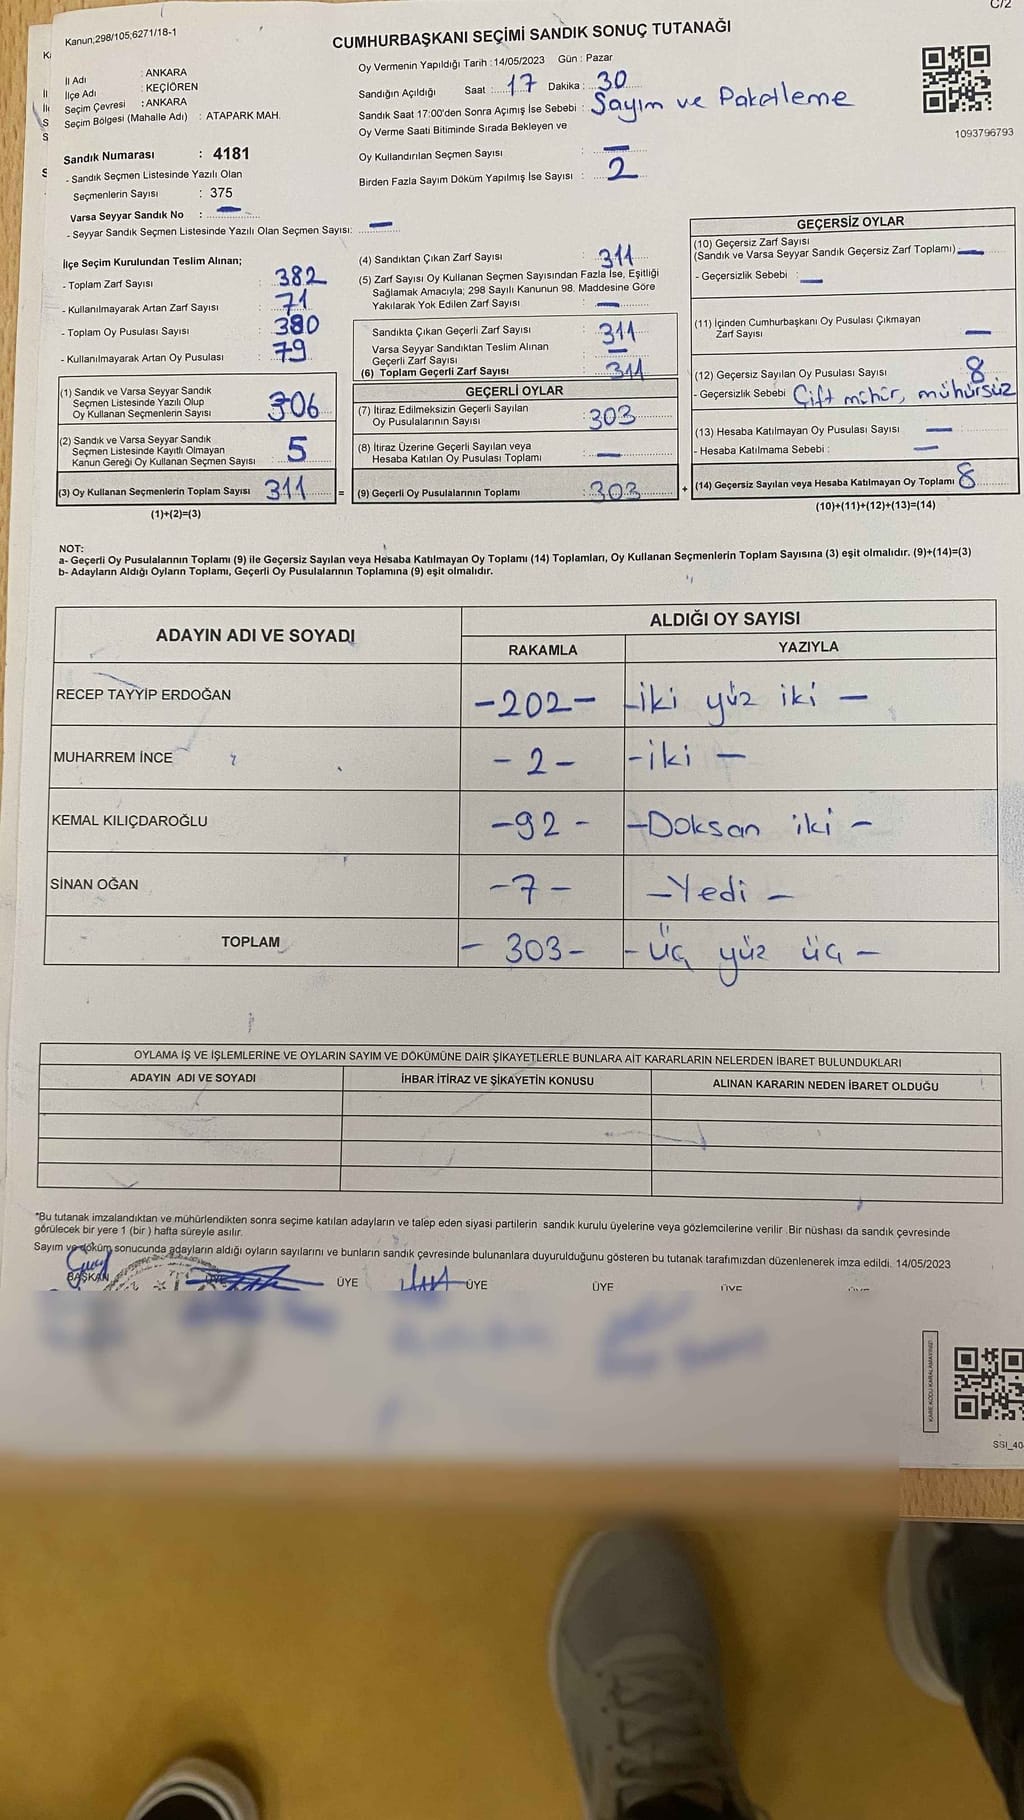 C/2
Kanun,298/105,6271/18-1
CUMHURBAŞKANI SEÇİMİ SANDIK SONUÇ TUTANAĞI
İl Adı : ANKARA
İlçe Adı : KEÇİÖREN
Seçim Çevresi : ANKARA
Seçim Bölgesi (Mahalle Adı) : ATAPARK MAH.
Sandık Numarası : 4181
- Sandık Seçmen Listesinde Yazılı Olan
Seçmenlerin Sayısı : 375
Varsa Seyyar Sandık No : —
- Seyyar Sandık Seçmen Listesinde Yazılı Olan Seçmen Sayısı: —
Oy Vermenin Yapıldığı Tarih :14/05/2023 Gün : Pazar
Sandığın Açıldığı Saat : 17 Dakika : 30
Sandık Saat 17:00'den Sonra Açımış İse Sebebi : Sayım ve Paketleme
Oy Verme Saati Bitiminde Sırada Bekleyen ve
Oy Kullandırılan Seçmen Sayısı : —
Birden Fazla Sayım Döküm Yapılmış İse Sayısı : 2
1093796793
İlçe Seçim Kurulundan Teslim Alınan;
- Toplam Zarf Sayısı : 382
- Kullanılmayarak Artan Zarf Sayısı : 71
- Toplam Oy Pusulası Sayısı : 380
- Kullanılmayarak Artan Oy Pusulası : 79
(1) Sandık ve Varsa Seyyar Sandık
Seçmen Listesinde Yazılı Olup
Oy Kullanan Seçmenlerin Sayısı 306
(2) Sandık ve Varsa Seyyar Sandık
Seçmen Listesinde Kayıtlı Olmayan
Kanun Gereği Oy Kullanan Seçmen Sayısı 5
(3) Oy Kullanan Seçmenlerin Toplam Sayısı 311 =
(1)+(2)=(3)
(4) Sandıktan Çıkan Zarf Sayısı : 311
(5) Zarf Sayısı Oy Kullanan Seçmen Sayısından Fazla İse, Eşitliği
Sağlamak Amacıyla; 298 Sayılı Kanunun 98. Maddesine Göre
Yakılarak Yok Edilen Zarf Sayısı : —
Sandıkta Çıkan Geçerli Zarf Sayısı : 311
Varsa Seyyar Sandıktan Teslim Alınan
Geçerli Zarf Sayısı : —
(6) Toplam Geçerli Zarf Sayısı : 311
GEÇERLİ OYLAR
(7) İtiraz Edilmeksizin Geçerli Sayılan
Oy Pusulalarının Sayısı : 303
(8) İtiraz Üzerine Geçerli Sayılan veya
Hesaba Katılan Oy Pusulası Toplamı : —
(9) Geçerli Oy Pusulalarının Toplamı : 303 +
GEÇERSİZ OYLAR
(10) Geçersiz Zarf Sayısı
(Sandık ve Varsa Seyyar Sandık Geçersiz Zarf Toplamı) —
- Geçersizlik Sebebi : —
(11) İçinden Cumhurbaşkanı Oy Pusulası Çıkmayan
Zarf Sayısı —
(12) Geçersiz Sayılan Oy Pusulası Sayısı 8
- Geçersizlik Sebebi Çift mühür, mühürsüz
(13) Hesaba Katılmayan Oy Pusulası Sayısı —
- Hesaba Katılmama Sebebi : —
(14) Geçersiz Sayılan veya Hesaba Katılmayan Oy Toplamı 8
(10)+(11)+(12)+(13)=(14)
NOT:
a- Geçerli Oy Pusulalarının Toplamı (9) ile Geçersiz Sayılan veya Hesaba Katılmayan Oy Toplamı (14) Toplamları, Oy Kullanan Seçmenlerin Toplam Sayısına (3) eşit olmalıdır. (9)+(14)=(3)
b- Adayların Aldığı Oyların Toplamı, Geçerli Oy Pusulalarının Toplamına (9) eşit olmalıdır.
ADAYIN ADI VE SOYADI ALDIĞI OY SAYISI
RAKAMLA YAZIYLA
RECEP TAYYİP ERDOĞAN -202- -İki yüz iki -
MUHARREM İNCE -2- -iki -
KEMAL KILIÇDAROĞLU -92- -Doksan iki -
SİNAN OĞAN -7- -Yedi -
TOPLAM -303- -Üç yüz üç -
OYLAMA İŞ VE İŞLEMLERİNE VE OYLARIN SAYIM VE DÖKÜMÜNE DAİR ŞİKAYETLERLE BUNLARA AİT KARARLARIN NELERDEN İBARET BULUNDUKLARI
ADAYIN ADI VE SOYADI İHBAR İTİRAZ VE ŞİKAYETİN KONUSU ALINAN KARARIN NEDEN İBARET OLDUĞU
*Bu tutanak imzalandıktan ve mühürlendikten sonra seçime katılan adayların ve talep eden siyasi partilerin sandık kurulu üyelerine veya gözlemcilerine verilir. Bir nüshası da sandık çevresinde
görülecek bir yere 1 (bir ) hafta süreyle asılır.
Sayım ve döküm sonucunda adayların aldığı oyların sayılarını ve bunların sandık çevresinde bulunanlara duyurulduğunu gösteren bu tutanak tarafımızdan düzenlenerek imza edildi. 14/05/2023
BAŞKAN ÜYE ÜYE ÜYE ÜYE ÜYE
SSI_40